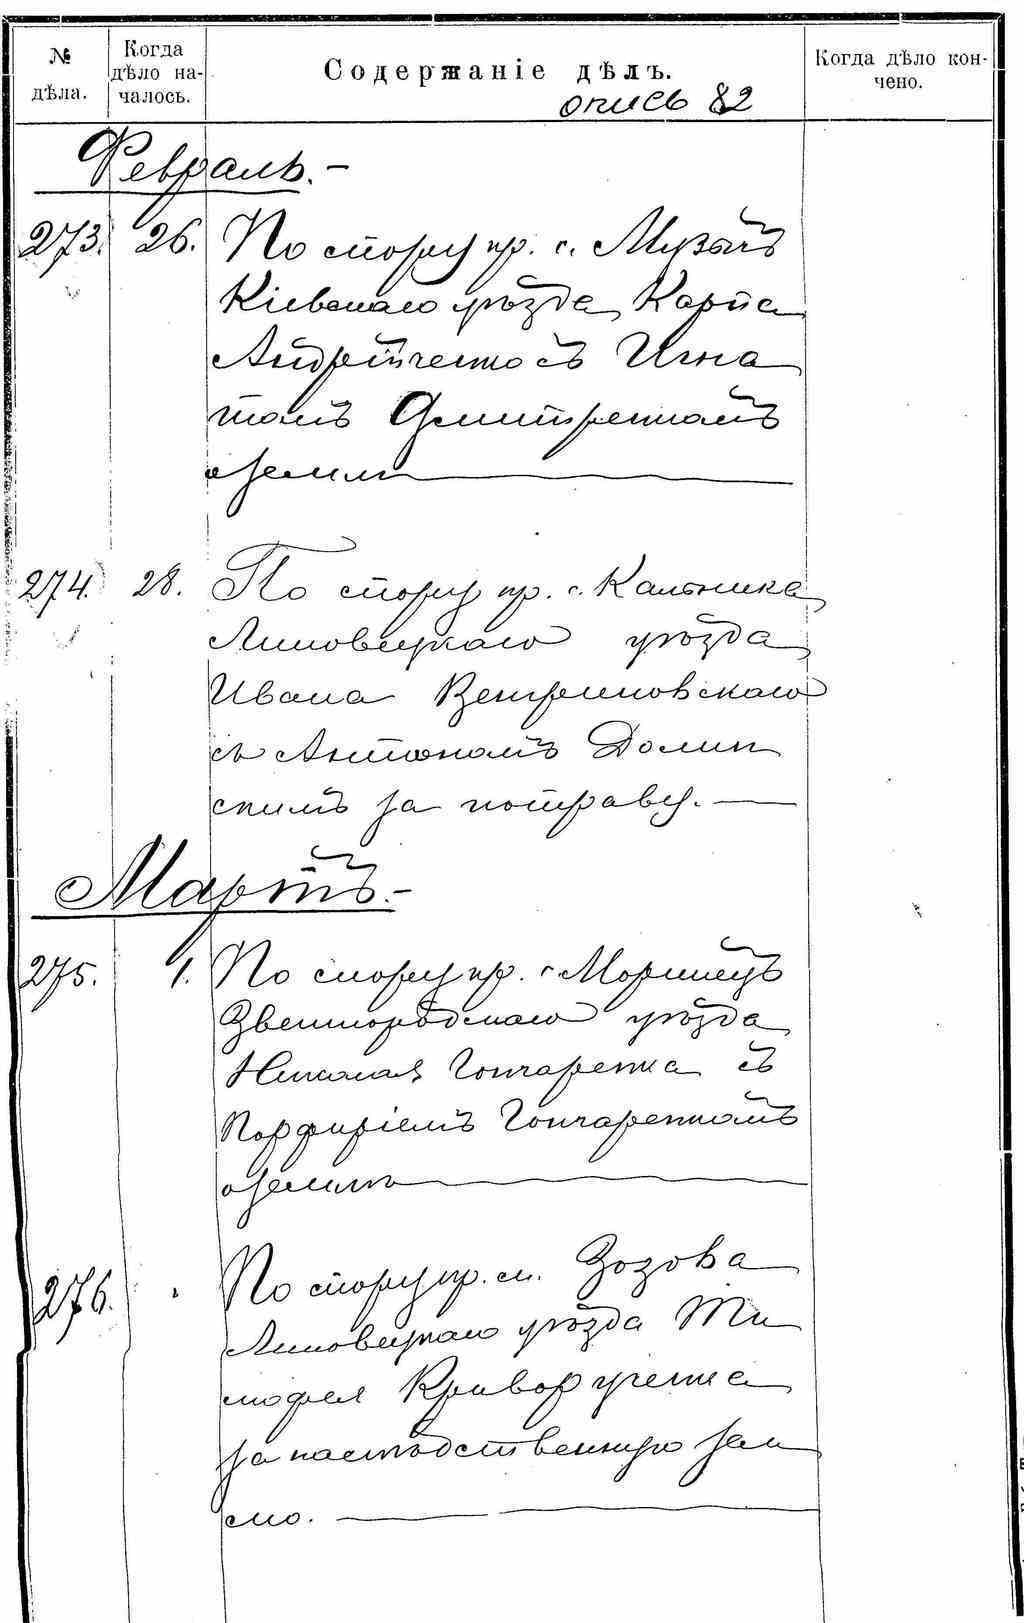 № дѣла.
Когда дѣло на-
чалось.
Содержаніе дѣлъ.
Когда дѣло кон-
чено.
опись 82
Февраль.-
273. 26. По спору кр. с. Музыч
Кіевскаго уѣзда Карпа
Андрійченко съ Игна
томъ Дмитренкомъ
о землѣ
274. 28. По спору кр. с. Кальника
Липовецкаго уѣзда
Ивана Вентриновскаго
съ Антономъ Долин
скимъ за потраву.
Мартъ.-
275. 1. По спору кр. с. Моринецъ
Звенигородскаго уѣзда
Николая Гончаренка съ
Порфиріемъ Гончаренкомъ
о землѣ
276. " По спору кр. м. Зозова
Липовецкаго уѣзда Ти
мофея Криворученка
за наслѣдственную зем
лю.